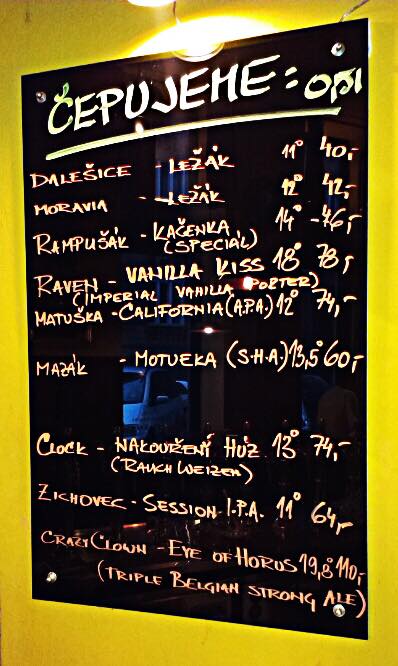 ČEPUJEME: 0,5l
DALEŠICE - LEŽÁK 11° 40,-
MORAVIA - LEŽÁK 12° 42,-
RAMPUŠÁK - KAČENKA 14° - 46,-
(SPECIÁL)
RAVEN - VANILLA KISS 18° 78,-
(IMPERIAL VANILLA PORTER)
MATUŠKA - CALIFORNIA (A.P.A.) 12° 74,-
MAZÁK - MOTUEKA (S.H.A) 13,5° 60,-
CLOCK - NAKOUŘENÝ HÚZ 13° 74,-
(RAUCHWEIZEN)
ZICHOVEC - SESSION I.P.A. 11° 64,-
CRAZY CLOWN - EYE OF HORUS 19,8° 110,-
(TRIPLE BELGIAN STRONG ALE)